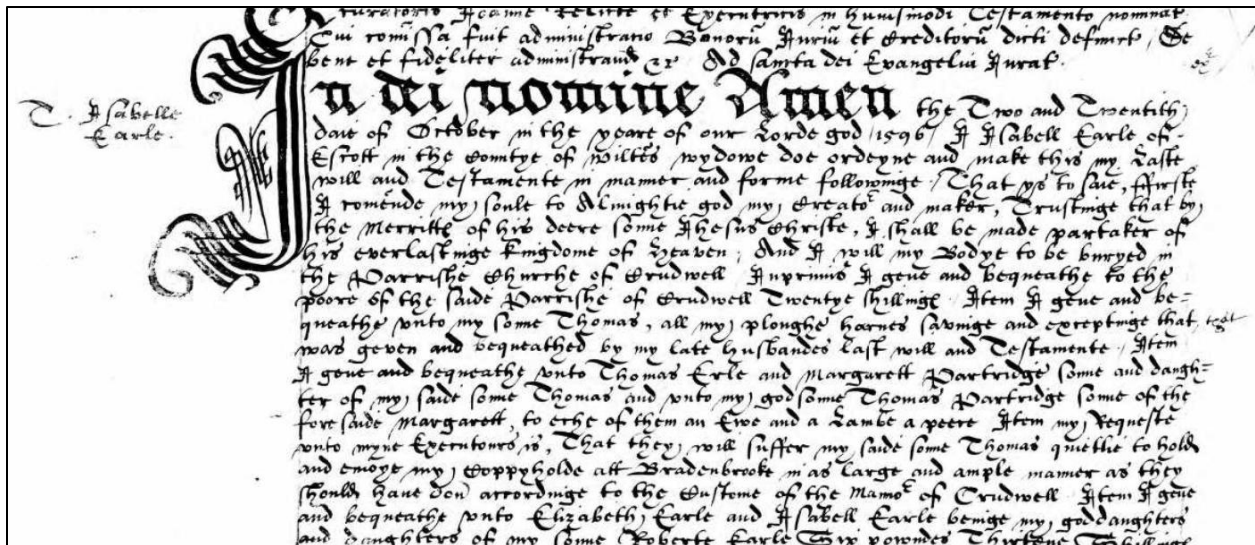 Curatoris Joanne Relicte et Executricis in huiusmodi Testamento nominat
Cui comissa fuit administratio Bonorũ Juriũ et Creditorũ dicti defunct, De
bene et fideliter administrand Ad sancta dei Evangelia Jurat
T. Isabelle
Earle.
In dei nomine Amen the Two and Twentith
daie of October in the yeare of our Lorde god 1596, I Isabell Earle of
Escott in the Comtye of Wiltes wydowe doe ordeyne and make this my Laste
will and Testamente in maner and forme followinge, That ys to saie, ffirste
I comende my soule to Almightie god my Creator and maker, Trustinge that by
the Merritte of his deere sonne Jhesus Christe, I shall be made partaker of
his everlastinge kingdome of Heaven, And I will my Bodye to be buryed in
the Parrishe Churche of Crudwell Inprimis I geve and bequeathe to the
poore of the saide Parrishe of Crudwell Twentye shillinge Item I geve and be=
queathe vnto my sonne Thomas, all my ploughe harnes savinge and exceptinge that,
was geven and bequeathed by my late husbandes last will and Testamente, Item
I geve and bequeathe vnto Thomas Erle and Margarett Partridge sonne and daugh=
ter of my saide sonne Thomas and vnto my godsonne Thomas Partridge sonne of the
foresaide Margarett, to eche of them an Ewe and a Lambe a peere Item my Requeste
vnto myne Executours is, That they will suffer my saide sonne Thomas quietlie to hold
and enioye my Coppyholde att Bradenbrooke in as large and ample maner as they
should have don accordinge to the Custome of the Manor of Crudwell Item I geve
and bequeathe vnto Elizabeth Earle and Isabell Earle beinge my goddaughters
and daughters of my sonne Roberte Earle Six powndes Thirtene Shillinge